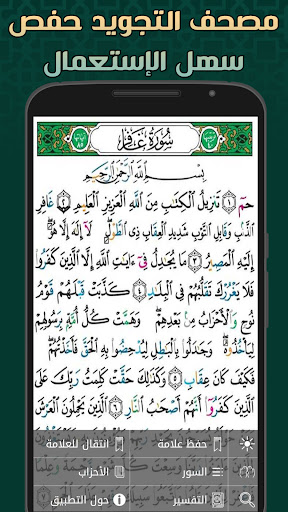 مصحف التجويد حفص
سهل الإستعمال
سُورَةُ غَافِرٍ
بِسْمِ اللَّهِ الرَّحْمَٰنِ الرَّحِيمِ
حمٓ ۝١ تَنزِيلُ الْكِتَٰبِ مِنَ اللَّهِ الْعَزِيزِ الْعَلِيمِ ۝٢ غَافِرِ
الذَّنۢبِ وَقَابِلِ التَّوْبِ شَدِيدِ الْعِقَابِ ذِي الطَّوْلِ لَآ إِلَٰهَ إِلَّا هُوَ
إِلَيْهِ الْمَصِيرُ ۝٣ مَا يُجَٰدِلُ فِيٓ ءَايَٰتِ اللَّهِ إِلَّا الَّذِينَ كَفَرُوا
فَلَا يَغْرُرْكَ تَقَلُّبُهُمْ فِي الْبِلَٰدِ ۝٤ كَذَّبَتْ قَبْلَهُمْ قَوْمُ
نُوحٍ وَالْأَحْزَابُ مِنۢ بَعْدِهِمْ وَهَمَّتْ كُلُّ أُمَّةٍۭ بِرَسُولِهِمْ
لِيَأْخُذُوهُ وَجَٰدَلُوا بِالْبَٰطِلِ لِيُدْحِضُوا بِهِ الْحَقَّ فَأَخَذْتُهُمْ
فَكَيْفَ كَانَ عِقَابِ ۝٥ وَكَذَٰلِكَ حَقَّتْ كَلِمَتُ رَبِّكَ عَلَى
الَّذِينَ كَفَرُوٓا أَنَّهُمْ أَصْحَٰبُ النَّارِ ۝٦ الَّذِينَ يَحْمِلُونَ الْعَرْشَ
حفظ علامة
انتقال للعلامة
السور
الأحزاب
التفسير
حول التطبيق